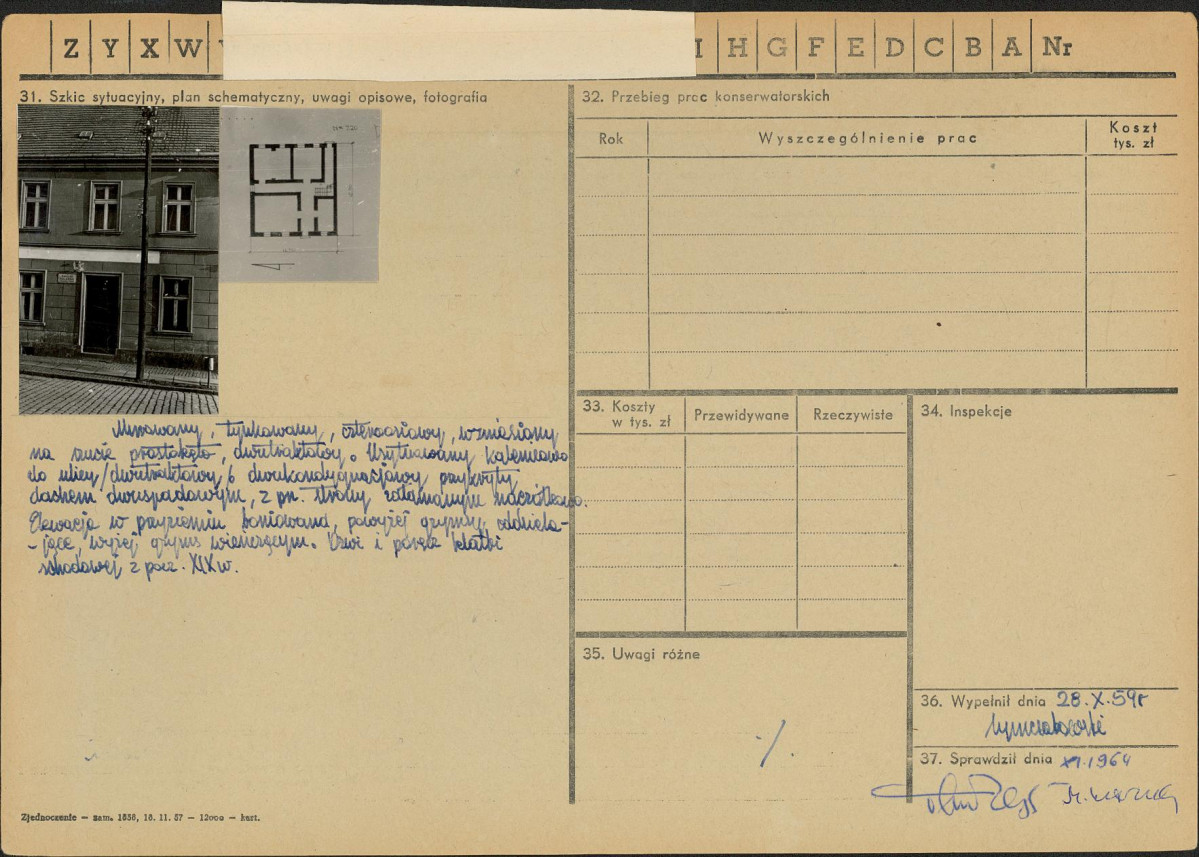 Z Y X W I H G F E D C B A Nr
31. Szkic sytuacyjny, plan schematyczny, uwagi opisowe, fotografia
Murowany, tynkowany, czteroosiowy, wzniesiony
na rzucie prostokąta, dwutraktowy. Usytuowany kalenicowo
do ulicy /dwutraktowy/ dwukondygnacjowy przykryty
dachem dwuspadowym, z pn. strony załamanym naczółkowo.
Elewacja w przyziemiu boniowana, powyżej gzymsy oddziela-
-jące, wyżej gzyms wieńczącym. Drzwi i poręcz klatki
schodowej z pocz. XIX w.
32. Przebieg prac konserwatorskich
Rok Wyszczególnienie prac Koszt
tys. zł
33. Koszty
w tys. zł Przewidywane Rzeczywiste
34. Inspekcje
35. Uwagi różne
./.
36. Wypełnił dnia 28.X.59r
37. Sprawdził dnia XI.1964
Zjednoczenie — zam. 1838, 18. 11. 57 — 12000 — kart.